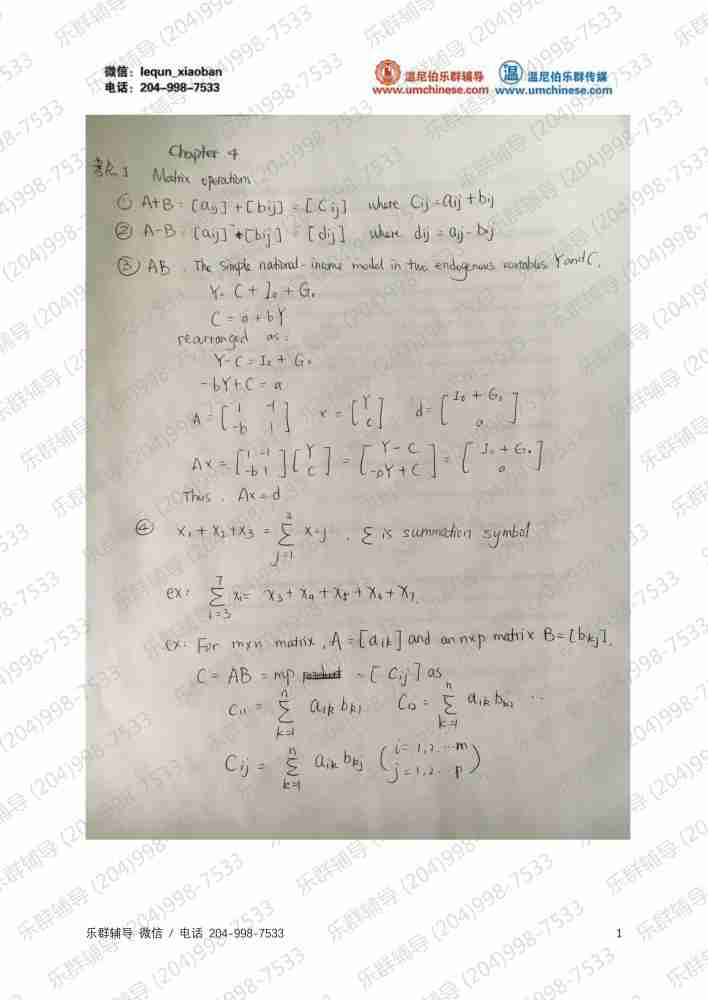 微信: lequn_xiaoban
电话: 204-998-7533
温尼伯乐群辅导
www.umchinese.com
温尼伯乐群传媒
www.umchinese.com
Chapter 4
考点1 Matrix operations
① A+B = [aij] + [bij] = [Cij] where Cij = aij + bij
② A-B = [aij] - [bij] = [dij] where dij = aij - bij
③ AB. The simple national-income model in two endogenous variables Y and C.
Y = C + I₀ + G₀
C = a + bY
rearranged as:
Y - C = I₀ + G₀
-bY + C = a
A = [1 -1 -b 1] x = [Y C] d = [I₀ + G₀ a]
Ax = [1 -1 -b 1] [Y C] = [Y - C -bY + C] = [I₀ + G₀ a]
Thus, Ax = d
④ x₁ + x₂ + x₃ = 3 Σ j=1 x=j, Σ is summation symbol
ex: 7 Σ i=3 xᵢ = x₃ + x₄ + x₅ + x₆ + x₇.
ex: For mxn matrix, A = [aik] and an nxp matrix B = [bkj],
C = AB = mp ~ [Cij] as
C₁₁ = n Σ k=1 a₁k bk₁ C₁₂ = n Σ k=1 a₁k bk₂ ...
Cij = n Σ k=1 aik bkj (i = 1,2...m j = 1,2...p)
乐群辅导 微信 / 电话 204-998-7533 1
乐群辅导 (204)998-7533